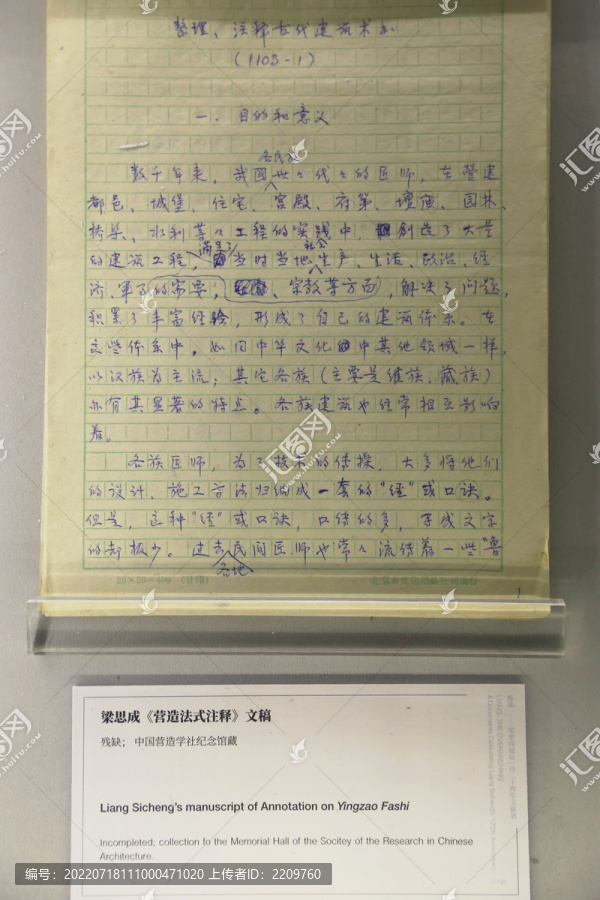 整理、注释古代建筑术书
(1103-1)
一. 目的和意义
各民族
数千年来，我国世々代々的匠师，在营建
都邑、城堡、住宅、宫殿、府第、坛庙、园林、
桥梁、水利等々工程的实践中，创造了大量
满足了 社会
的建筑工程，当时当地生产、生活、政治、经
济、军事的需要，宗教等方面，解决了问题，
积累了丰富经验，形成了自己的建筑体系。在
这些体系中，如同中华文化中其他领域一样，
以汉族为主流；其它各族（主要是维族、藏族）
亦有其显著的特点。各族建筑也经常相互影响
着。
各族匠师，为了技术的传授，大多将他们
的设计、施工方法归纳成一套的“经”或口诀。
但是，这种“经”或口诀，口传的多，写成文字
的却极少。过去民间匠师也常々流传着一些“鲁
各地
20×20=400（甘用）
1
梁思成《营造法式注释》文稿
残缺； 中国营造学社纪念馆藏
Liang Sicheng's manuscript of Annotation on Yingzao Fashi
Incompleted; collection fo the Memorial Hall of the Socitey of the Research in Chinese
Architecture.
编号：20220718111000471020 上传者ID：2209760
汇图网
www.huitu.com